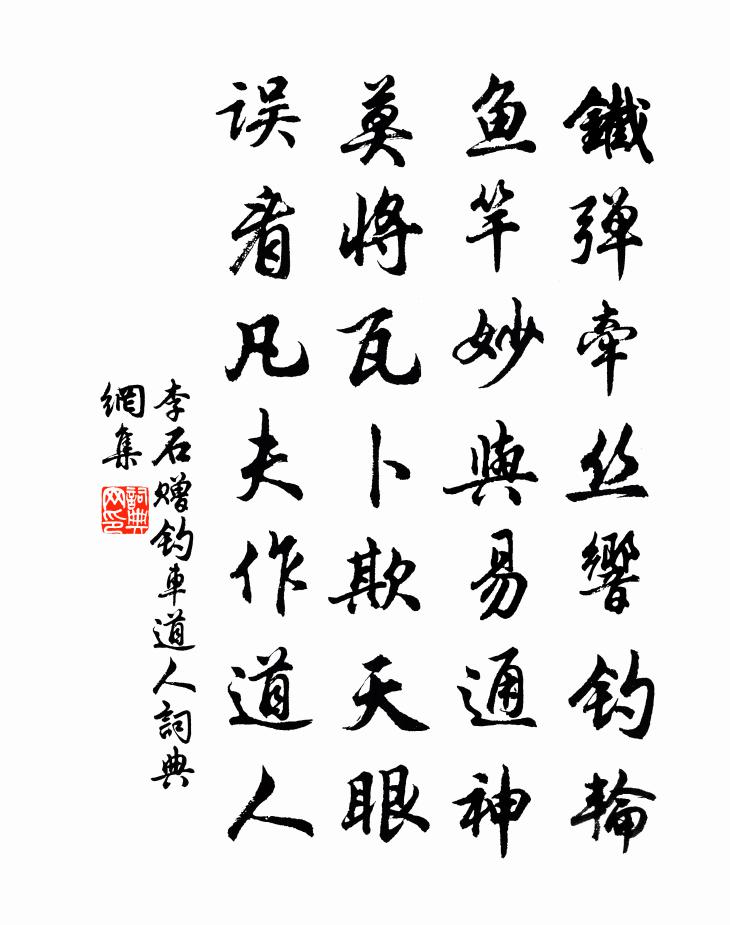 鐵弹牵丝響钓輪
鱼竿妙與易通神
莫將瓦卜欺天眼
误看凡夫作道人
李石赠钓車道人詞典
網集
詞典网印